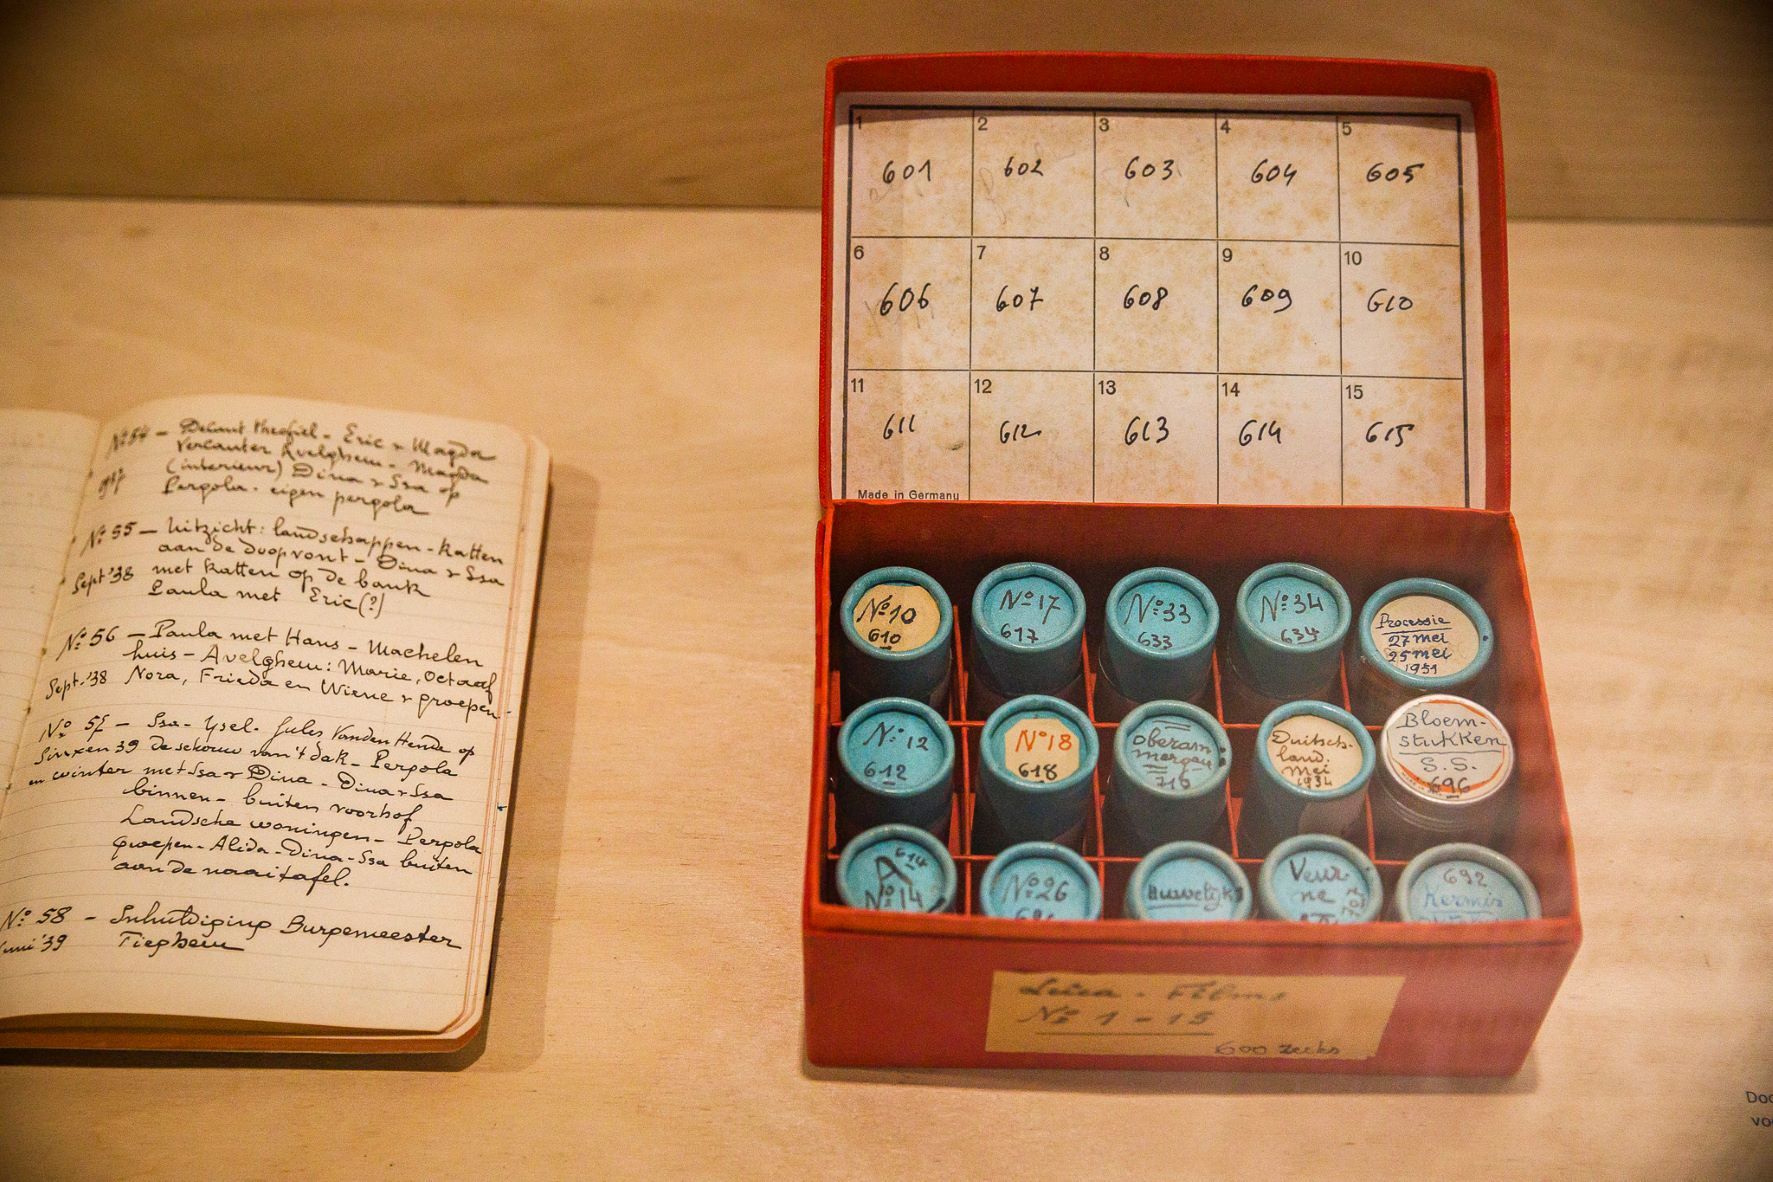 Nº 54 — Delaut Theofiel - Eric & Magda
Verlauter Avelghem - Magda
(interieur) Dina & Ssa op
Pergola - eigen pergola
Nº 55 — Uitzicht: landschappen - katten
aan de doopvont - Dina & Ssa
Sept '38 met katten op de bank
Paula met Eric (?)
Nº 56 — Paula met Hans - Machelen
huis - Avelghem: Marie, Octaaf
Sept. '38 Nora, Frieda en Wiene & groepen.
Nº 57 — Ssa - Ysel. Jules VandenHende op
Sinxen 39 de schouw van 't dak - Pergola
en winter met Ssa & Dina - Dina & Ssa
binnen - buiten voorhof
Landsche woningen - Pergola
groepen - Alida - Dina - Ssa buiten
aan de naaitafel.
Nº 58 — Inhuldiging Burgemeester
Juni '39 Tieghem
1 2 3 4 5
601 602 603 604 605
6 7 8 9 10
606 607 608 609 610
11 12 13 14 15
611 612 613 614 615
Made in Germany
Nº 10
610
Nº 17
617
Nº 33
633
Nº 34
634
Processie
27 mei
25 mei
1951
Nº 12
612
Nº 18
618
oberam-
mergau
716
Duitsch-
land.
Mei
1934
Bloem-
stukken
S.S.
696
A 614
Nº 14
Nº 26
Huwelijk
Veur-
ne
692
Kermis
Leica - Films
Nº 1 - 15
600 reeks
Doo
voo